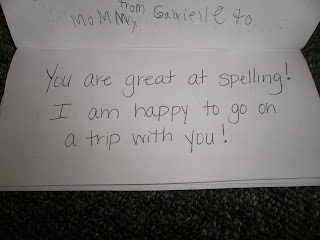 from
MoMMy Gabrielle to
You are great at spelling!
I am happy to go on
a trip with you!